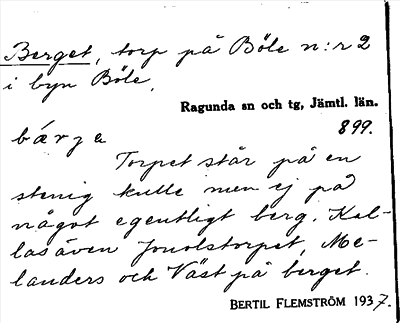 Berget, torp på Böle n:r 2
i byn Böle.
Ragunda sn och tg, Jämtl. län.
899.
bærje
Torpet står på en
stenig kulle men ej på
något egentligt berg. Kal-
las även Jonolstorpet, Me-
landers och Väst på berget.
BERTIL FLEMSTRÖM 1937.